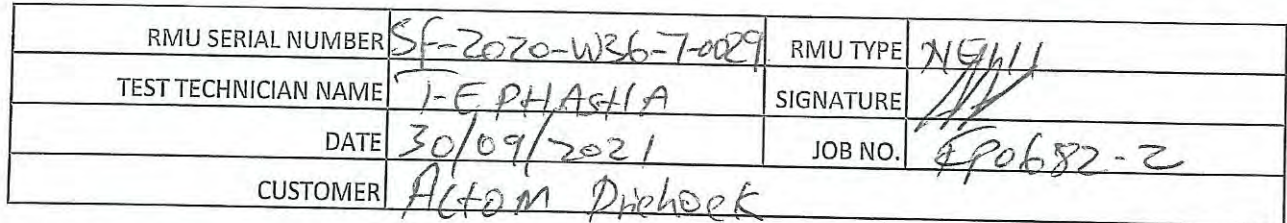 RMU SERIAL NUMBER SF-2020-W36-7-0029 RMU TYPE
TEST TECHNICIAN NAME T-E PHASHA SIGNATURE
DATE 30/09/2021 JOB NO. EP0682-2
CUSTOMER Actom Driehoek